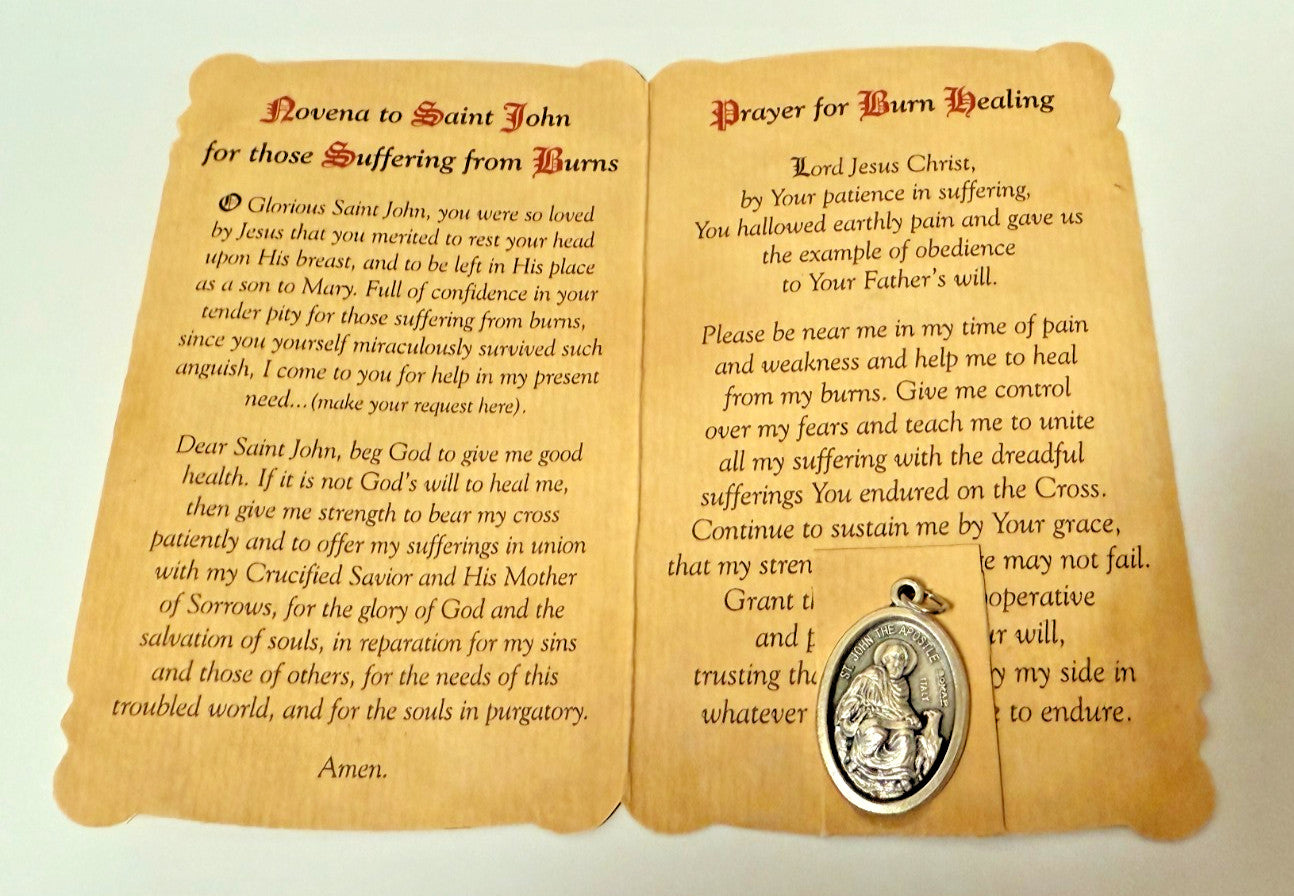 Novena to Saint John
for those Suffering from Burns
O Glorious Saint John, you were so loved
by Jesus that you merited to rest your head
upon His breast, and to be left in His place
as a son to Mary. Full of confidence in your
tender pity for those suffering from burns,
since you yourself miraculously survived such
anguish, I come to you for help in my present
need...(make your request here).
Dear Saint John, beg God to give me good
health. If it is not God's will to heal me,
then give me strength to bear my cross
patiently and to offer my sufferings in union
with my Crucified Savior and His Mother
of Sorrows, for the glory of God and the
salvation of souls, in reparation for my sins
and those of others, for the needs of this
troubled world, and for the souls in purgatory.
Amen.
Prayer for Burn Healing
Lord Jesus Christ,
by Your patience in suffering,
You hallowed earthly pain and gave us
the example of obedience
to Your Father's will.
Please be near me in my time of pain
and weakness and help me to heal
from my burns. Give me control
over my fears and teach me to unite
all my suffering with the dreadful
sufferings You endured on the Cross.
Continue to sustain me by Your grace,
that my may not fail.
Grant
and will,
trusting my side in
whatever to endure.
ST. JOHN THE APOSTLE
ITALY